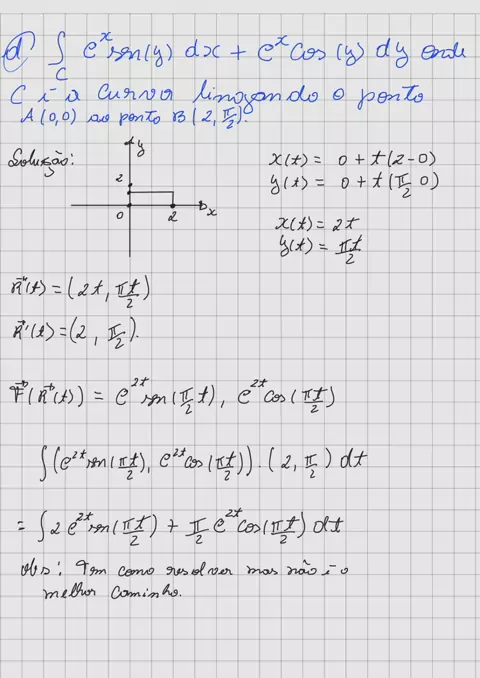 d) ∫_C e^x sen(y) dx + e^x cos(y) dy onde
C é a curva lingando o ponto
A(0,0) ao ponto B(2, π/2).
Solução:
y
2
0 2 x
x(t) = 0 + t(2-0)
y(t) = 0 + t(π/2 0)
x(t) = 2t
y(t) = πt/2
R(t) = (2t, πt/2)
R'(t) = (2, π/2).
F(R(t)) = e^2t sen(π/2 t), e^2t cos(πt/2)
∫(e^2t sen(πt/2), e^2t cos(πt/2)) · (2, π/2) dt
= ∫ 2 e^2t sen(πt/2) + π/2 e^2t cos(πt/2) dt
obs: Tem como resolver mas não é o
melhor caminho.